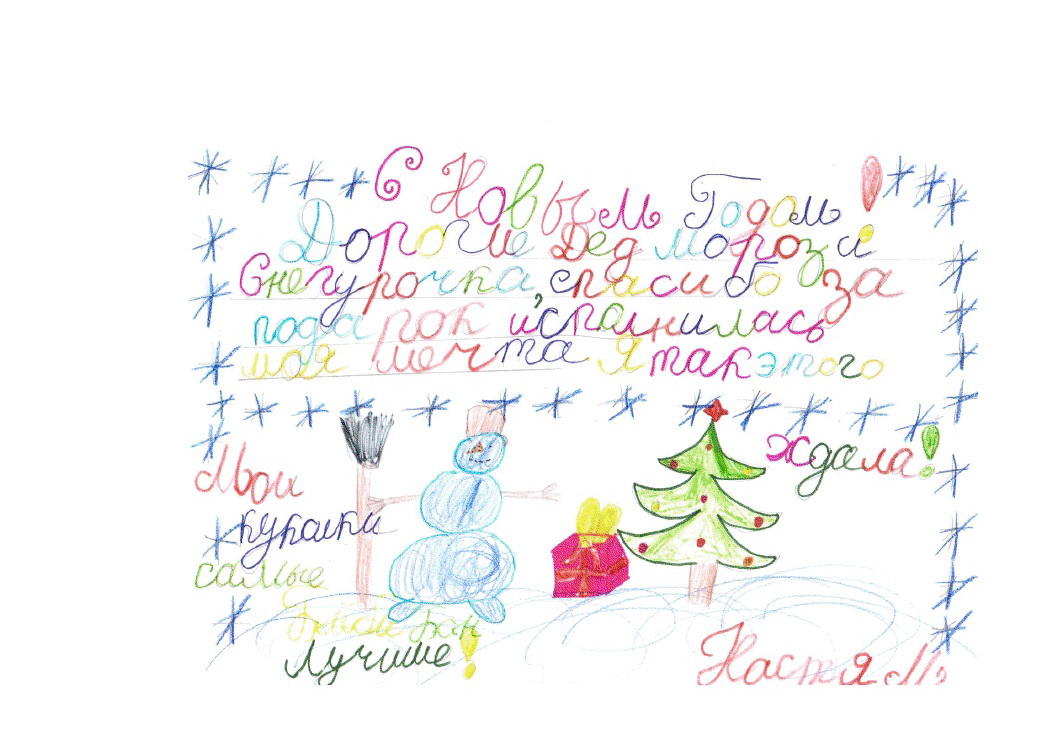 С Новым Годом!
Дорогие Дед мороз и
Снегурочка, спасибо за
подарок исполнилась
моя мечта Я так этого
ждала!
Мои
куколки
самые
Лучшие!
Настя М.